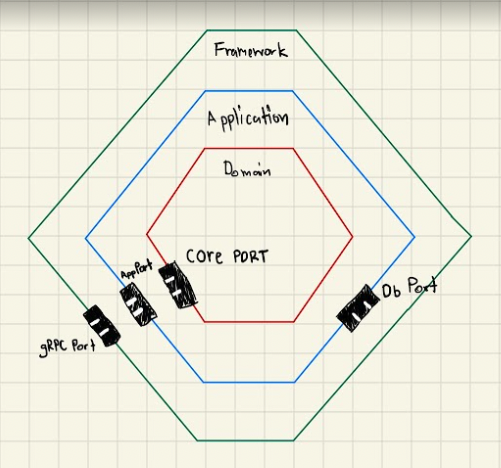 Framework
Application
Domain
Core PORT
App Port
Db Port
gRPC Port